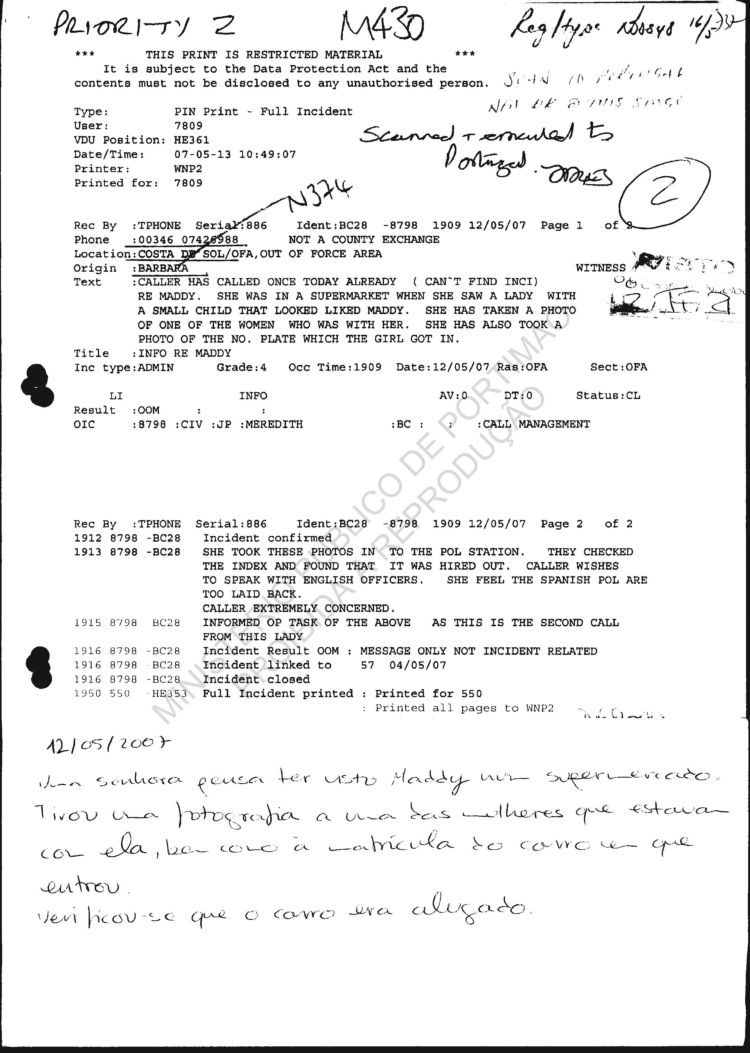 PRIORITY 2 M430 Reg/type
*** THIS PRINT IS RESTRICTED MATERIAL ***
It is subject to the Data Protection Act and the
contents must not be disclosed to any unauthorised person.
Type: PIN Print - Full Incident
User: 7809
VDU Position: HE361
Date/Time: 07-05-13 10:49:07
Printer: WNP2
Printed for: 7809
Scanned + emailed to
Portugal.
2
N374
Rec By :TPHONE Serial:886 Ident:BC28 -8798 1909 12/05/07 Page 1 of 2
Phone :00346 07426988 NOT A COUNTY EXCHANGE
Location:COSTA DE SOL/OFA,OUT OF FORCE AREA
Origin :BARBARA WITNESS
Text :CALLER HAS CALLED ONCE TODAY ALREADY ( CAN`T FIND INCI)
RE MADDY. SHE WAS IN A SUPERMARKET WHEN SHE SAW A LADY WITH
A SMALL CHILD THAT LOOKED LIKED MADDY. SHE HAS TAKEN A PHOTO
OF ONE OF THE WOMEN WHO WAS WITH HER. SHE HAS ALSO TOOK A
PHOTO OF THE NO. PLATE WHICH THE GIRL GOT IN.
Title :INFO RE MADDY
Inc type:ADMIN Grade:4 Occ Time:1909 Date:12/05/07 Ras:OFA Sect:OFA
LI INFO AV:0 DT:0 Status:CL
Result :OOM : :
OIC :8798 :CIV :JP :MEREDITH :BC : : :CALL MANAGEMENT
MINISTÉRIO PÚBLICO DE PORTIMÃO
PROIBIDA A REPRODUÇÃO
Rec By :TPHONE Serial:886 Ident:BC28 -8798 1909 12/05/07 Page 2 of 2
1912 8798 -BC28 Incident confirmed
1913 8798 -BC28 SHE TOOK THESE PHOTOS IN TO THE POL STATION. THEY CHECKED
THE INDEX AND FOUND THAT IT WAS HIRED OUT. CALLER WISHES
TO SPEAK WITH ENGLISH OFFICERS. SHE FEEL THE SPANISH POL ARE
TOO LAID BACK.
CALLER EXTREMELY CONCERNED.
1915 8798 BC28 INFORMED OP TASK OF THE ABOVE AS THIS IS THE SECOND CALL
FROM THIS LADY
1916 8798 -BC28 Incident Result OOM : MESSAGE ONLY NOT INCIDENT RELATED
1916 8798 -BC28 Incident linked to 57 04/05/07
1916 8798 -BC28 Incident closed
1950 550 -HE353 Full Incident printed : Printed for 550
: Printed all pages to WNP2
12/05/2007
Uma senhora pensa ter visto Maddy num supermercado.
Tirou uma fotografia a uma das mulheres que estavam
com ela, bem como à matrícula do carro em que
entrou.
Verificou-se que o carro era alugado.